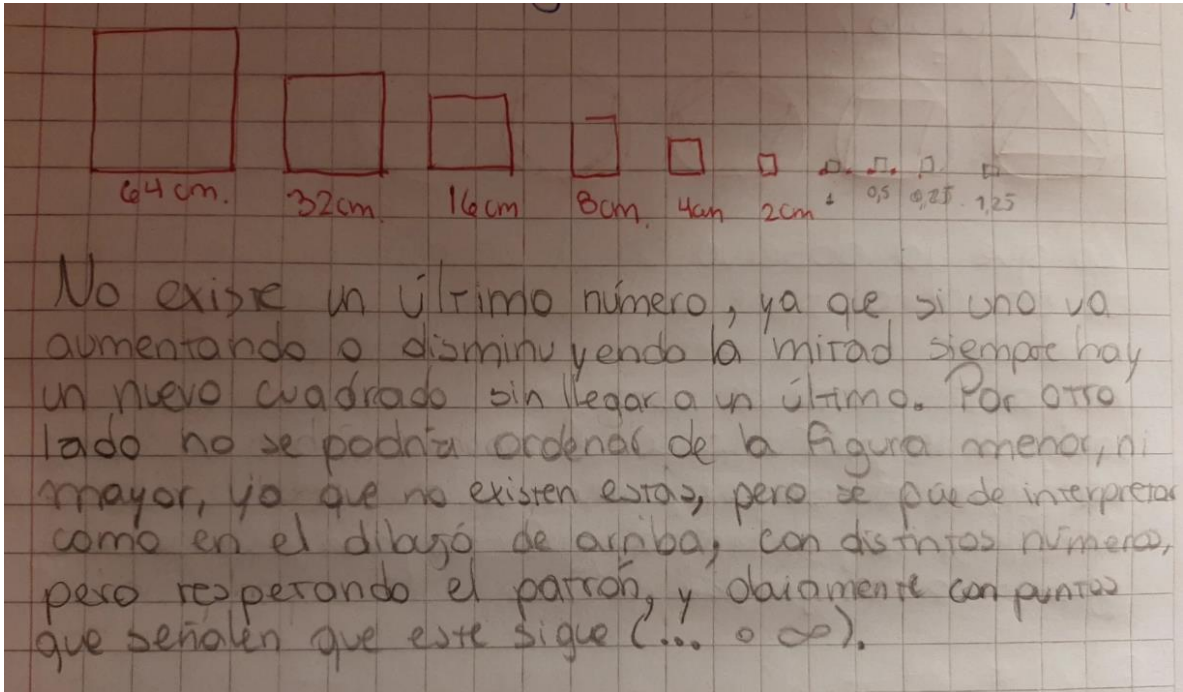 64 cm. 32cm 16cm 8cm. 4cm 2cm 1 0,5 0,25 1,25
No existe un último número, ya que si uno va
aumentando o disminuyendo la mitad siempre hay
un nuevo cuadrado sin llegar a un último. Por otro
lado no se podría ordenar de la figura menor, ni
mayor, ya que no existen estas, pero se puede interpretar
como en el dibujó de arriba, con distintos números,
pero respetando el patrón, y obiamente con puntos
que señalen que este sigue (... o ∞).